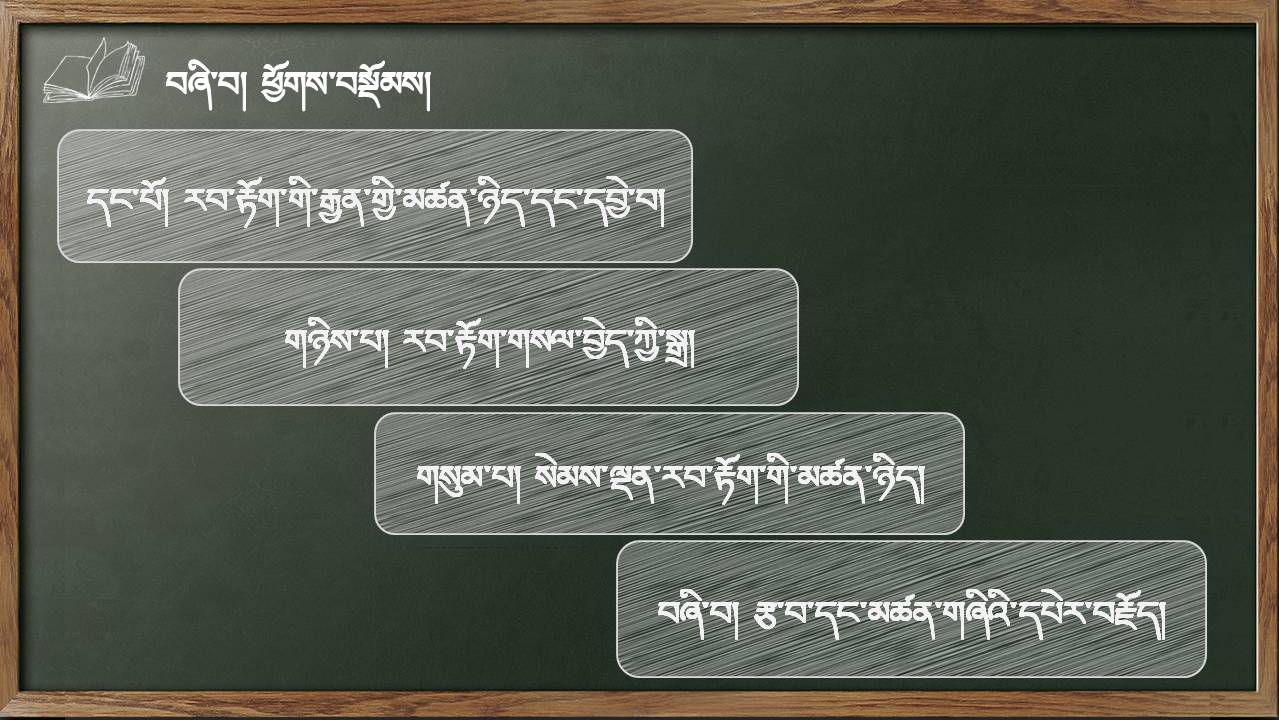 བཞི་བ། ཕྱོགས་བསྡོམས།
དང་པོ། རབ་རྟོག་གི་རྒྱན་གྱི་མཚན་ཉིད་དང་དབྱེ་བ།
གཉིས་པ། རབ་རྟོག་གསལ་བྱེད་ཀྱི་སྒྲ།
གསུམ་པ། སེམས་ལྡན་རབ་རྟོག་གི་མཚན་ཉིད།
བཞི་བ། རྩ་བ་དང་མཚན་གཞིའི་དཔེར་བརྗོད།